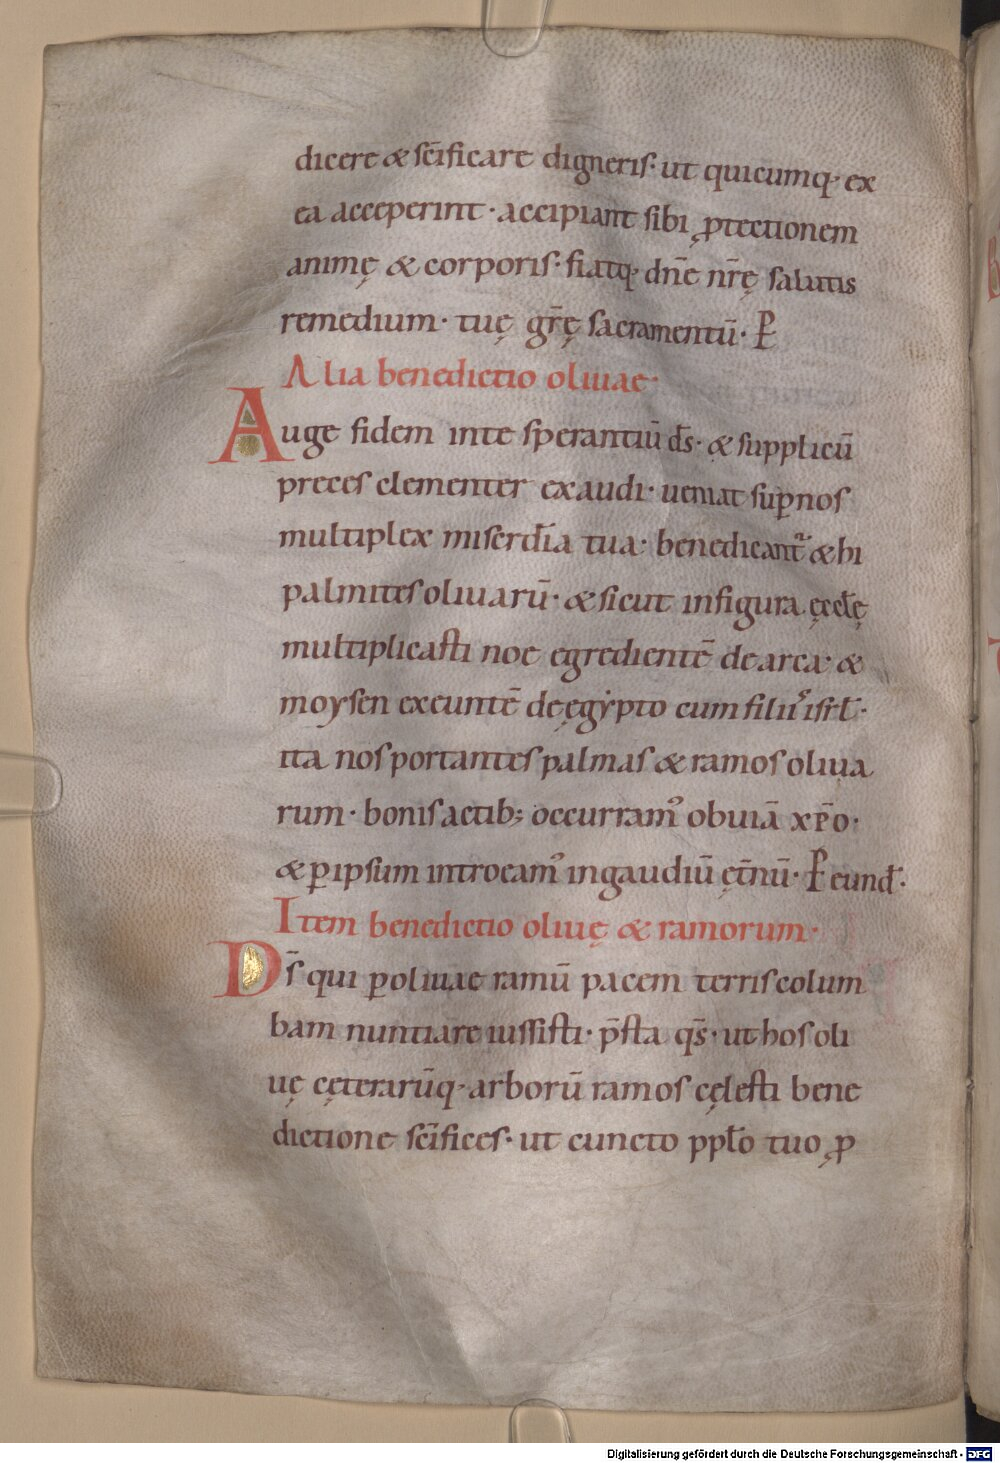 dicere & scīficare digneris· ut quicumq; ex
ea acceperint· accipiant sibi ꝓtectionem
animę & corporis· fiatq; dn̄e nr̄ę salutis
remedium· tuę gr̄ę sacramentū· P̲
Alia benedictio olivae·
Auge fidem inte sperantiū d̄s· & supplicū
preces clementer exaudi· ueniat suꝑnos
multiplex miserd̄ia tua· benedicant᷑ & hi
palmites olivarū· & sicut infigura ęccl̄ę
multiplicasti noe egredientē de arca· &
moysen exeuntē de ęgẏpto cum filiis isrl̄·
ita nos portantes palmas & ramos oliua
rum· bonis actib; occurramꝰ obuiā xp̄o·
& ꝑ ipsum introeamꝰ in gaudiū ęt̄nū· P̲ eund̄·
Item benedictio oliuę & ramorum·
D̄s qui ꝑ oliuae ramū pacem terris colum
bam nuntiare iussisti· p̄sta qs̄· ut hos oli
uę cęterarūq; arborū ramos cęlesti bene
dictione scīfices· ut cuncto ppl̄o tuo ꝓ
Digitalisierung gefördert durch die Deutsche Forschungsgemeinschaft - DFG